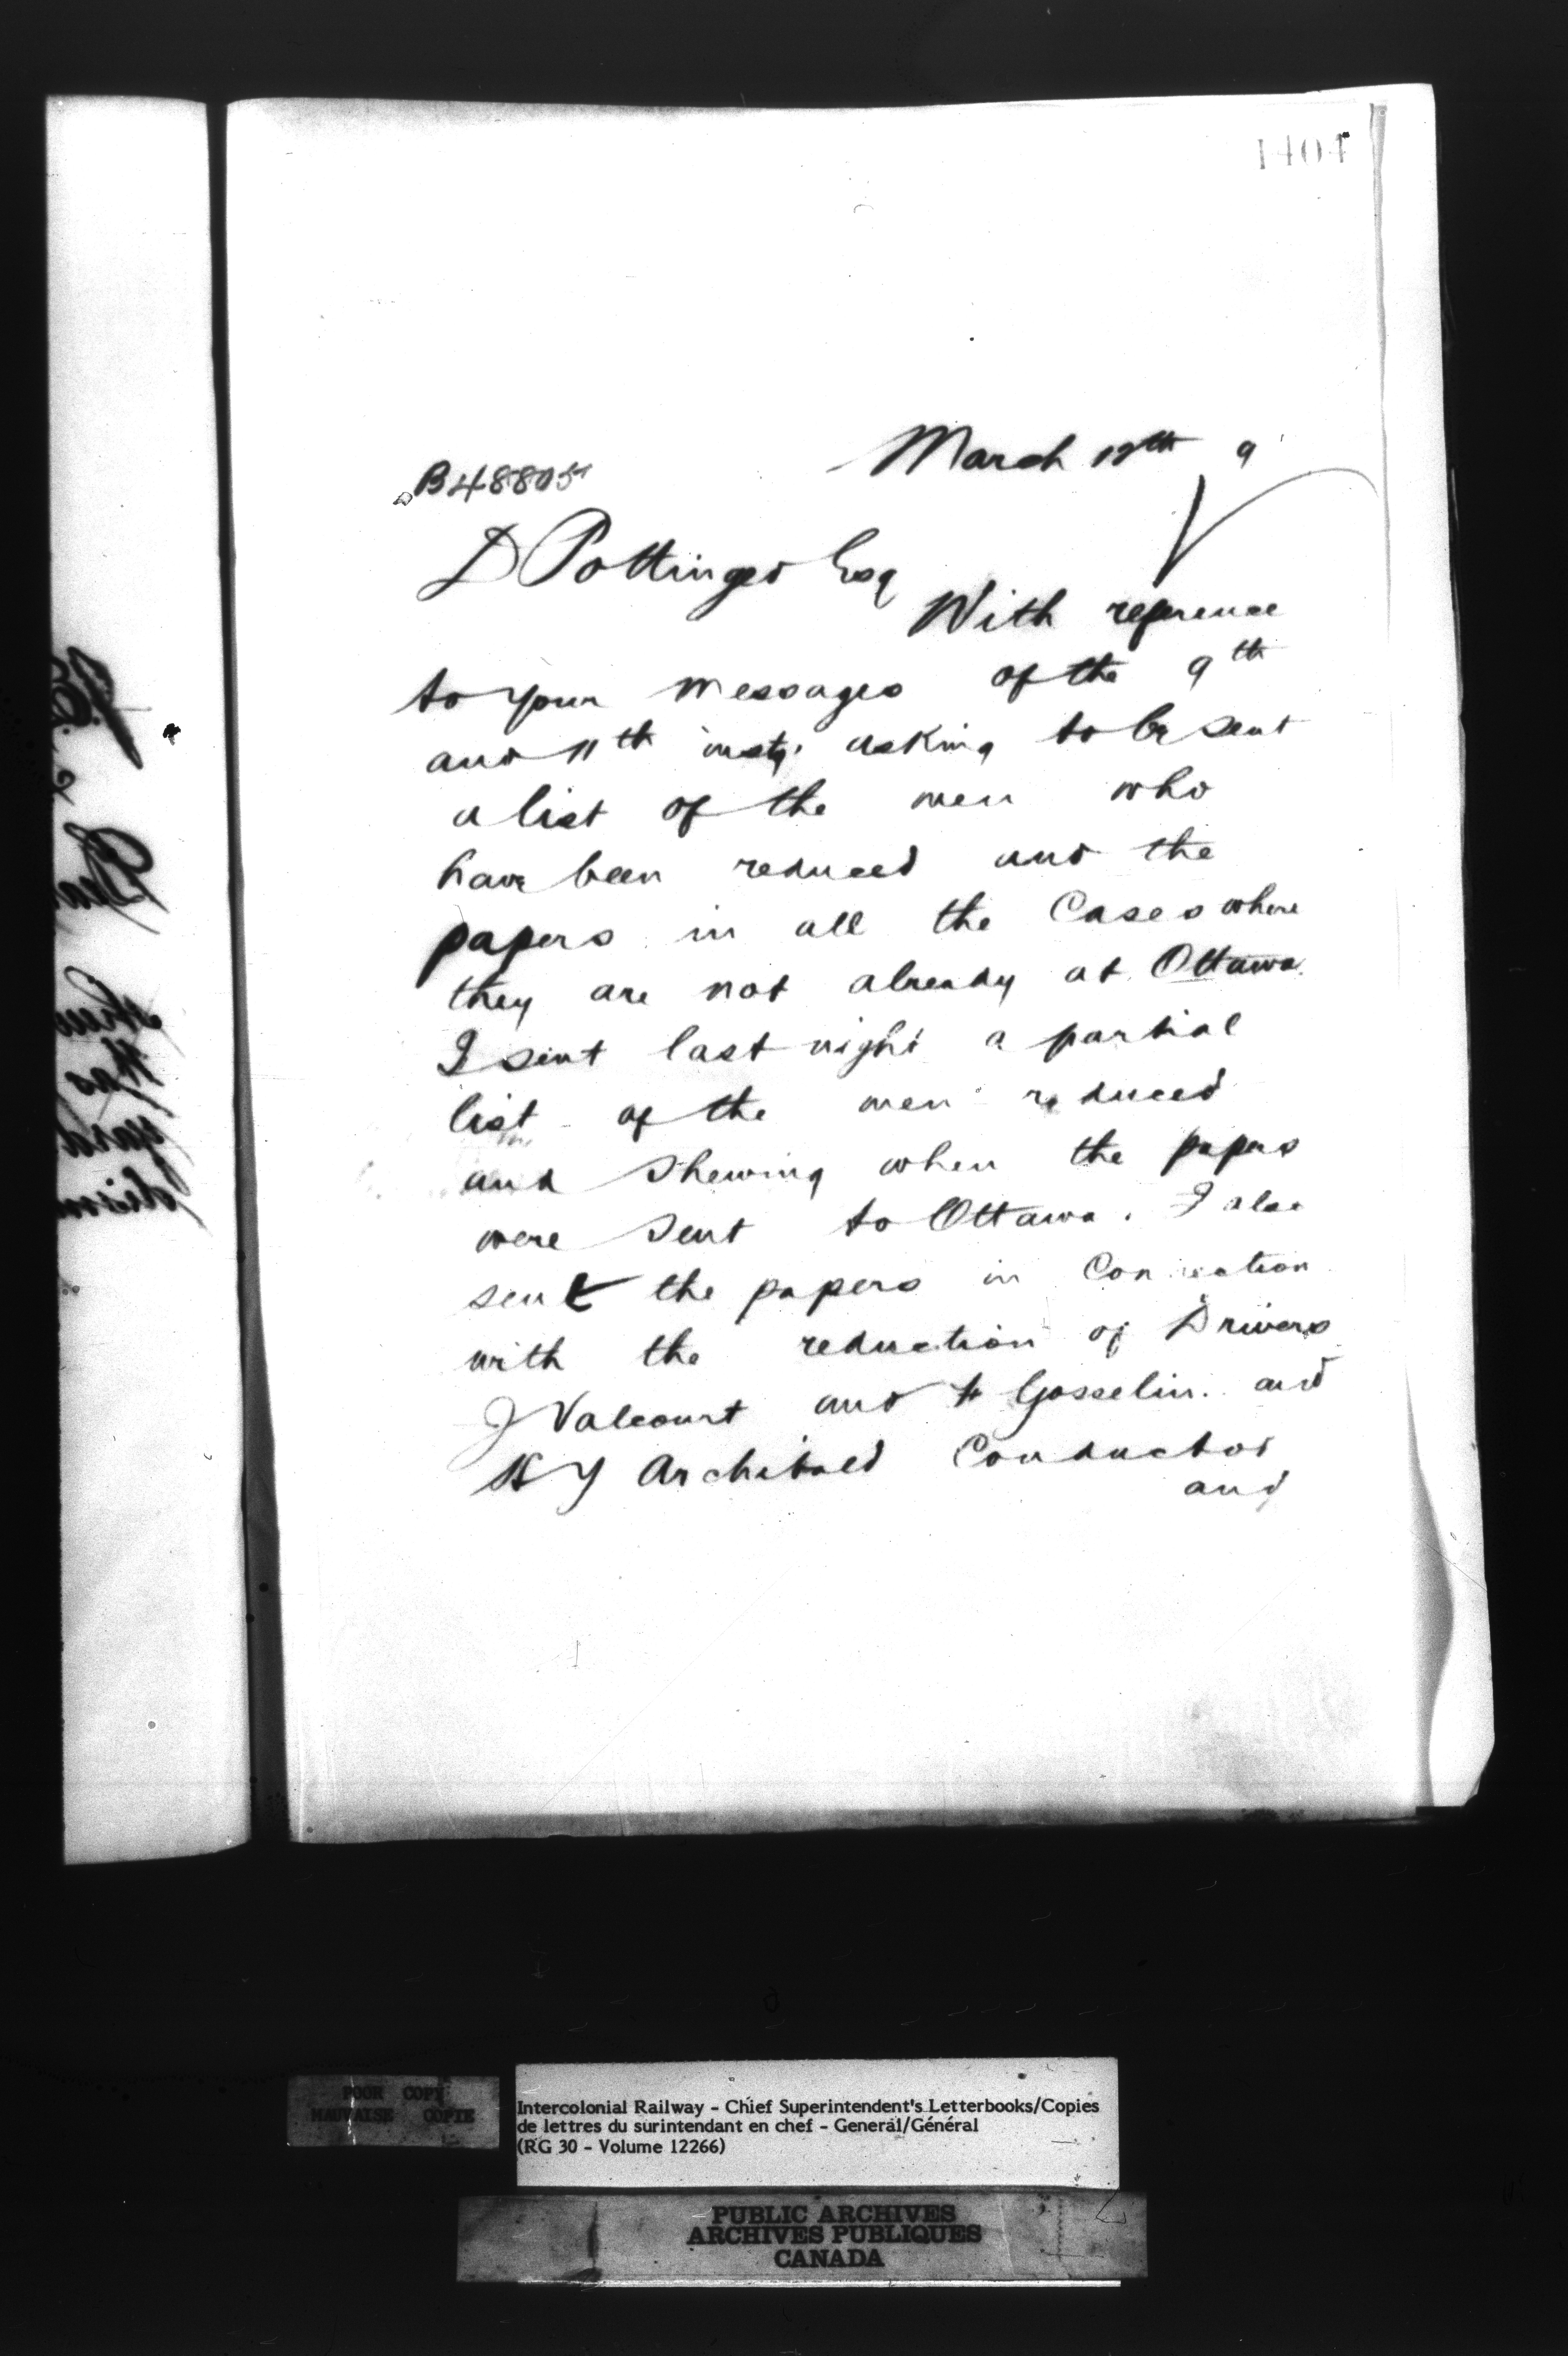 B48805
March 12th 9
D Pottinger Esq
With reference
to your messages of the 9th
and 11th insts. asking to be sent
a list of the men who
have been reduced and the
papers in all the Cases where
they are not already at Ottawa
I sent last night a partial
list of the men reduced
and Shewing when the papers
were sent to Ottawa. I also
sent the papers in Connection
with the reduction of Drivers
J Valcourt and H Gosselin. and
Archibald Conductor
and
POOR COPY
MAUVAISE COPIE
Intercolonial Railway - Chief Superintendent's Letterbooks/Copies
de lettres du surintendant en chef - General/Général
(RG 30 - Volume 12266)
PUBLIC ARCHIVES
ARCHIVES PUBLIQUES
CANADA